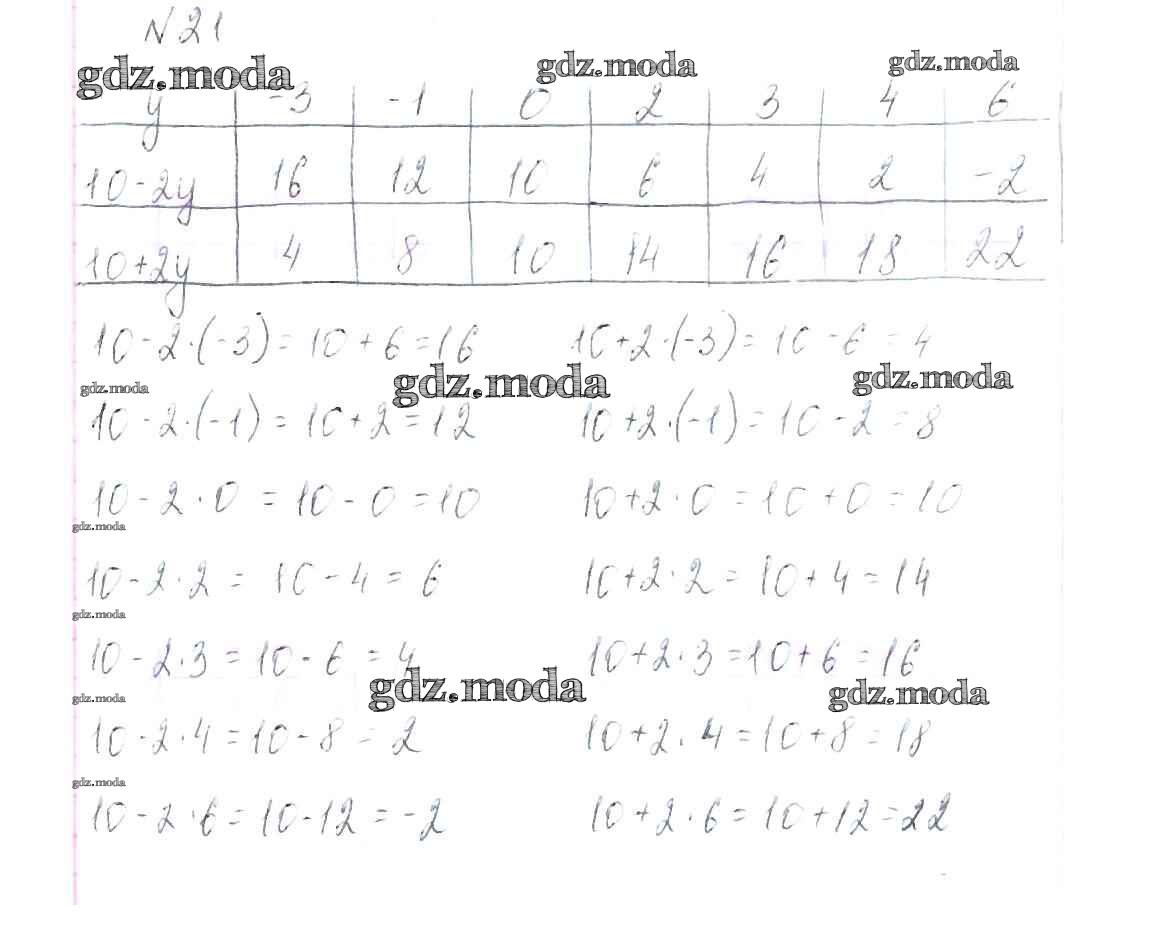 N 21
gdz.moda gdz.moda gdz.moda
y -3 -1 0 2 3 4 6
10-2y 16 12 10 6 4 2 -2
10+2y 4 8 10 14 16 18 22
10-2·(-3)=10+6=16 10+2·(-3)=10-6=4
gdz.moda gdz.moda gdz.moda
10-2·(-1)=10+2=12 10+2·(-1)=10-2=8
10-2·0=10-0=10 10+2·0=10+0=10
gdz.moda
10-2·2=10-4=6 10+2·2=10+4=14
gdz.moda
10-2·3=10-6=4 10+2·3=10+6=16
gdz.moda gdz.moda gdz.moda
10-2·4=10-8=2 10+2·4=10+8=18
gdz.moda
10-2·6=10-12=-2 10+2·6=10+12=22